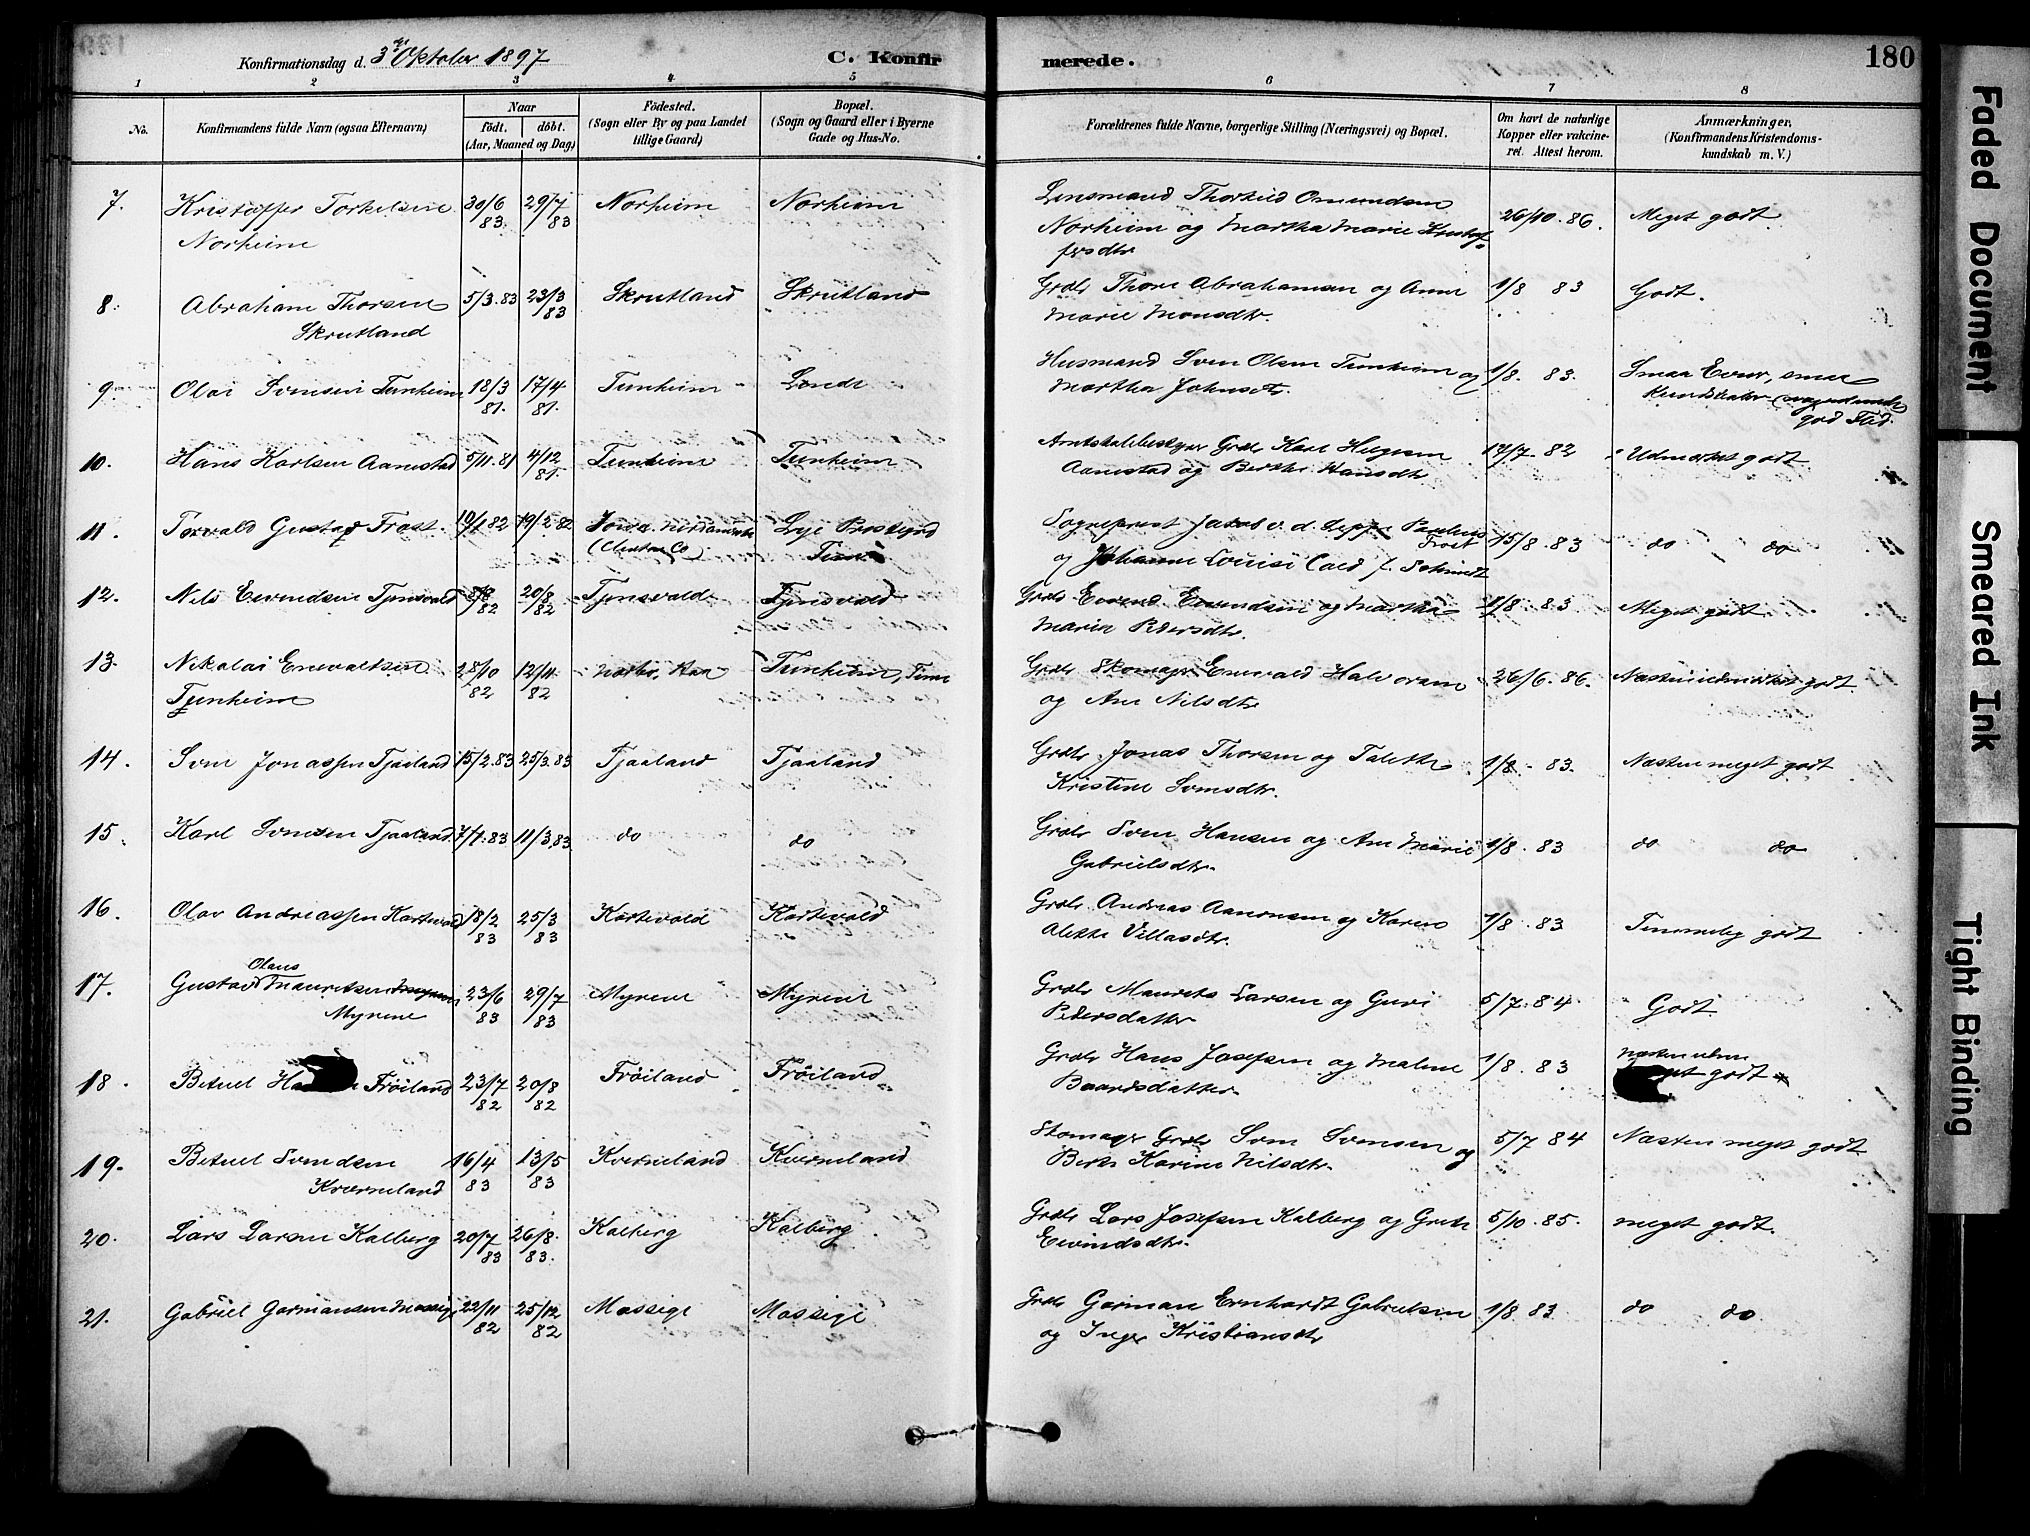 Konfirmationsdag d. 3die Oktober 1897
C. Konfirmerede.
180
1 2 3 4 5 6 7 8
No.
Konfirmandens fulde Navn (ogsaa Efternavn)
Naar
födt. döbt.
(Aar, Maaned og Dag)
Födested.
(Sogn eller By og paa Landet
tillige Gaard)
Bopæl.
(Sogn og Gaard eller i Byerne
Gade og Hus-No.
Forældrenes fulde Navne, borgerlige Stilling (Næringsvei) og Bopæl.
Om havt de naturlige
Kopper eller vakcine-
ret. Attest herom.
Anmærkninger.
(Konfirmandens Kristendoms-
kundskab m. V.)
7. Kristoffer Torkelsen 30/6 83 29/7 83 Norheim Norheim Lensmand Thorkild Omundsen 26/10. 86. Meget godt
Norheim Norheim og Martha Marie Kristof-
fersdtr
8. Abraham Thorsen 5/3.83 23/3 83 Skrutland Skrutland Grdbr Thore Abrahamsen og Anne 1/8 83 Godt.
Skrutland Marie Monsdtr.
9. Olai Svensen Tunheim 18/3 81. 17/4 81. Tunheim Lende Husmand Sven Olsen Tunheim og 1/8. 83. Smaa Evner, smaa
Martha Johnsdtr. Kundskaber
god Flid.
10. Hans Karlsen Aanestad 5/11.81 4/12 81. Tunheim Tunheim Grdbr Karl Helgesen 17/7. 82 Udmerket godt
Aanestad og Berthe Hansdtr
11. Torvald Gustav Frost. 10/1 82 19/2.82 Iowa. Nordamerika Lye Prestegrd Sogneprest Jacob v. d. Lippe Paulus 15/8 83 do do
(Clinton Co) Time Frost
og Johanne Louise Caed f. Schmidt
12. Nils Eivindsen Tjensvold 8/8 82 20/8 82 Tjensvold Tjensvold Grdbr Eivind Eivindsen og Martha 1/8 83 Meget godt
Maria Pedersdtr.
13. Nikolai Enevaldsen 28/10 82 12/11 82 Tunheim, Time Grdbr Skomager Enevald Halvorsen 26/6. 86. Næsten udmerket godt
Tjunheim og Ane Nilsdtr
14. Sven Jonassen Tjaaland 15/2.83 25/3.83 Tjaaland Tjaaland Grdbr. Jonas Thorsen og Talette 1/8 - 83. Næsten meget godt
Kristine Svensdtr.
15. Karl Svensen Tjaaland 7/1.83 11/3.83 do do Grdbr Sven Hansen og Ane Marie 1/8. 83 do do
Gabrielsdtr.
16. Olav Andreassen Kartevold 18/2 83 25/3 83 Kartevold Kartevold Grdbr Andreas Aanonsen og Karen 1/8. 83 Temmelig godt
Alette Villasdtr.
17. Gustav Olaus Mauritsen 23/6 83 29/7 83 Myrene Myrene Grdbr Maurits Larsen og Guri 5/7. 84 Godt.
Myrene Pedersdatter
18. Betuel Frøiland 23/7 82 20/8 82 Frøiland Frøiland Grdbr Hans Josefsen og Malene 1/8. 83 næsten
Baardsdatter. godt
19. Betuel Svendsen 16/4 83 13/5 83 Kverneland Kverneland Skomager Grdbr Sven Svensen og 5/7 84 Næsten meget godt
Kverneland Berte Karine Nilsdtr.
20. Lars Larsen Kalberg 20/7 83 26/8 83. Kalberg Kalberg Grdbr Lars Josefsen Kalberg og Grete 5/10. 85. meget godt.
Eivindsdtr.
21. Gabriel Gormansen Mossige 22/11 82 25/12 82 Mossige Mossige Grdbr Gorman Ernhardt Gabrielsen 1/8 83 do do
og Inger Kristiansdtr
Faded Document
Smeared Ink
Tight Binding